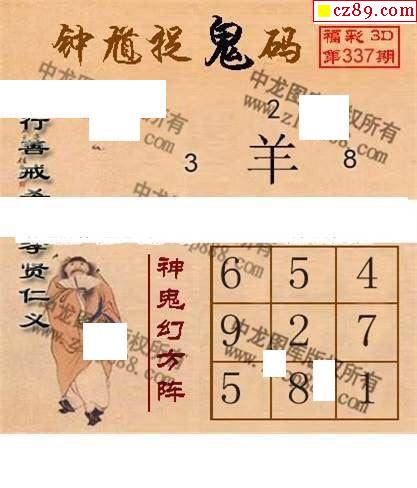 cz89.com
钟馗捉鬼码
福彩3D
第337期
行善戒
孝贤仁义
2
3 羊 8
神鬼幻方阵
6 5 4
9 2 7
5 8 1
中龙图库版权所有
中龙图库版权所有